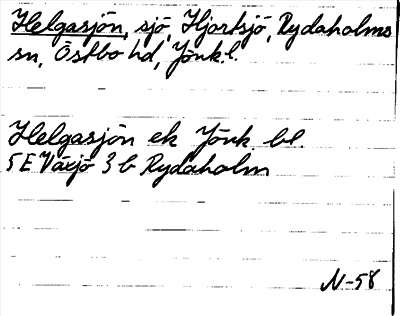 Helgasjön, sjö, Hjortsjö, Rydaholms
sn, Östbo hd, Jönk.l.
Helgasjön ek Jönk. bl.
5E Växjö 3b Rydaholm
N-58